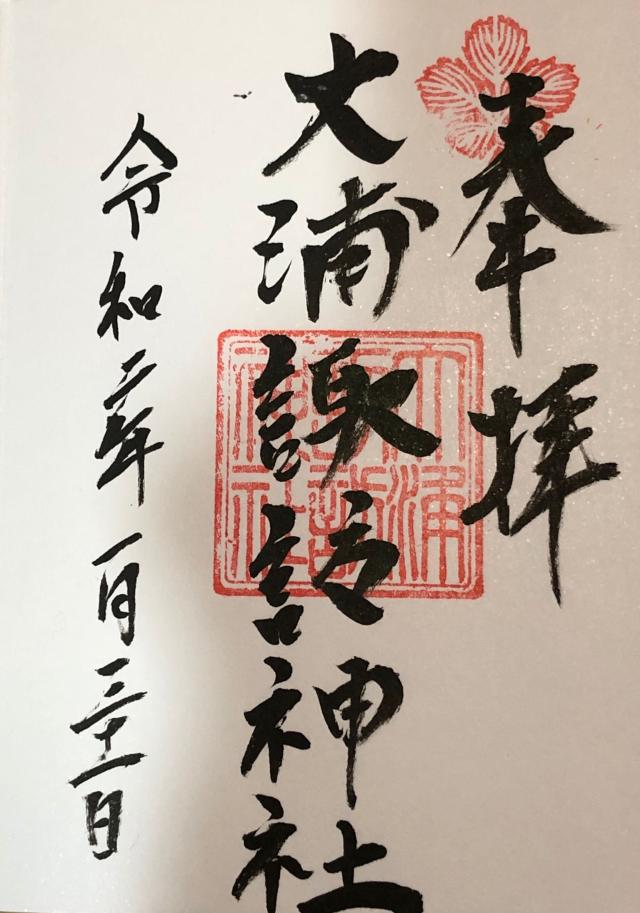 奉拝
大浦諏訪神社
令和二年一月三十一日
大浦
諏訪
神社